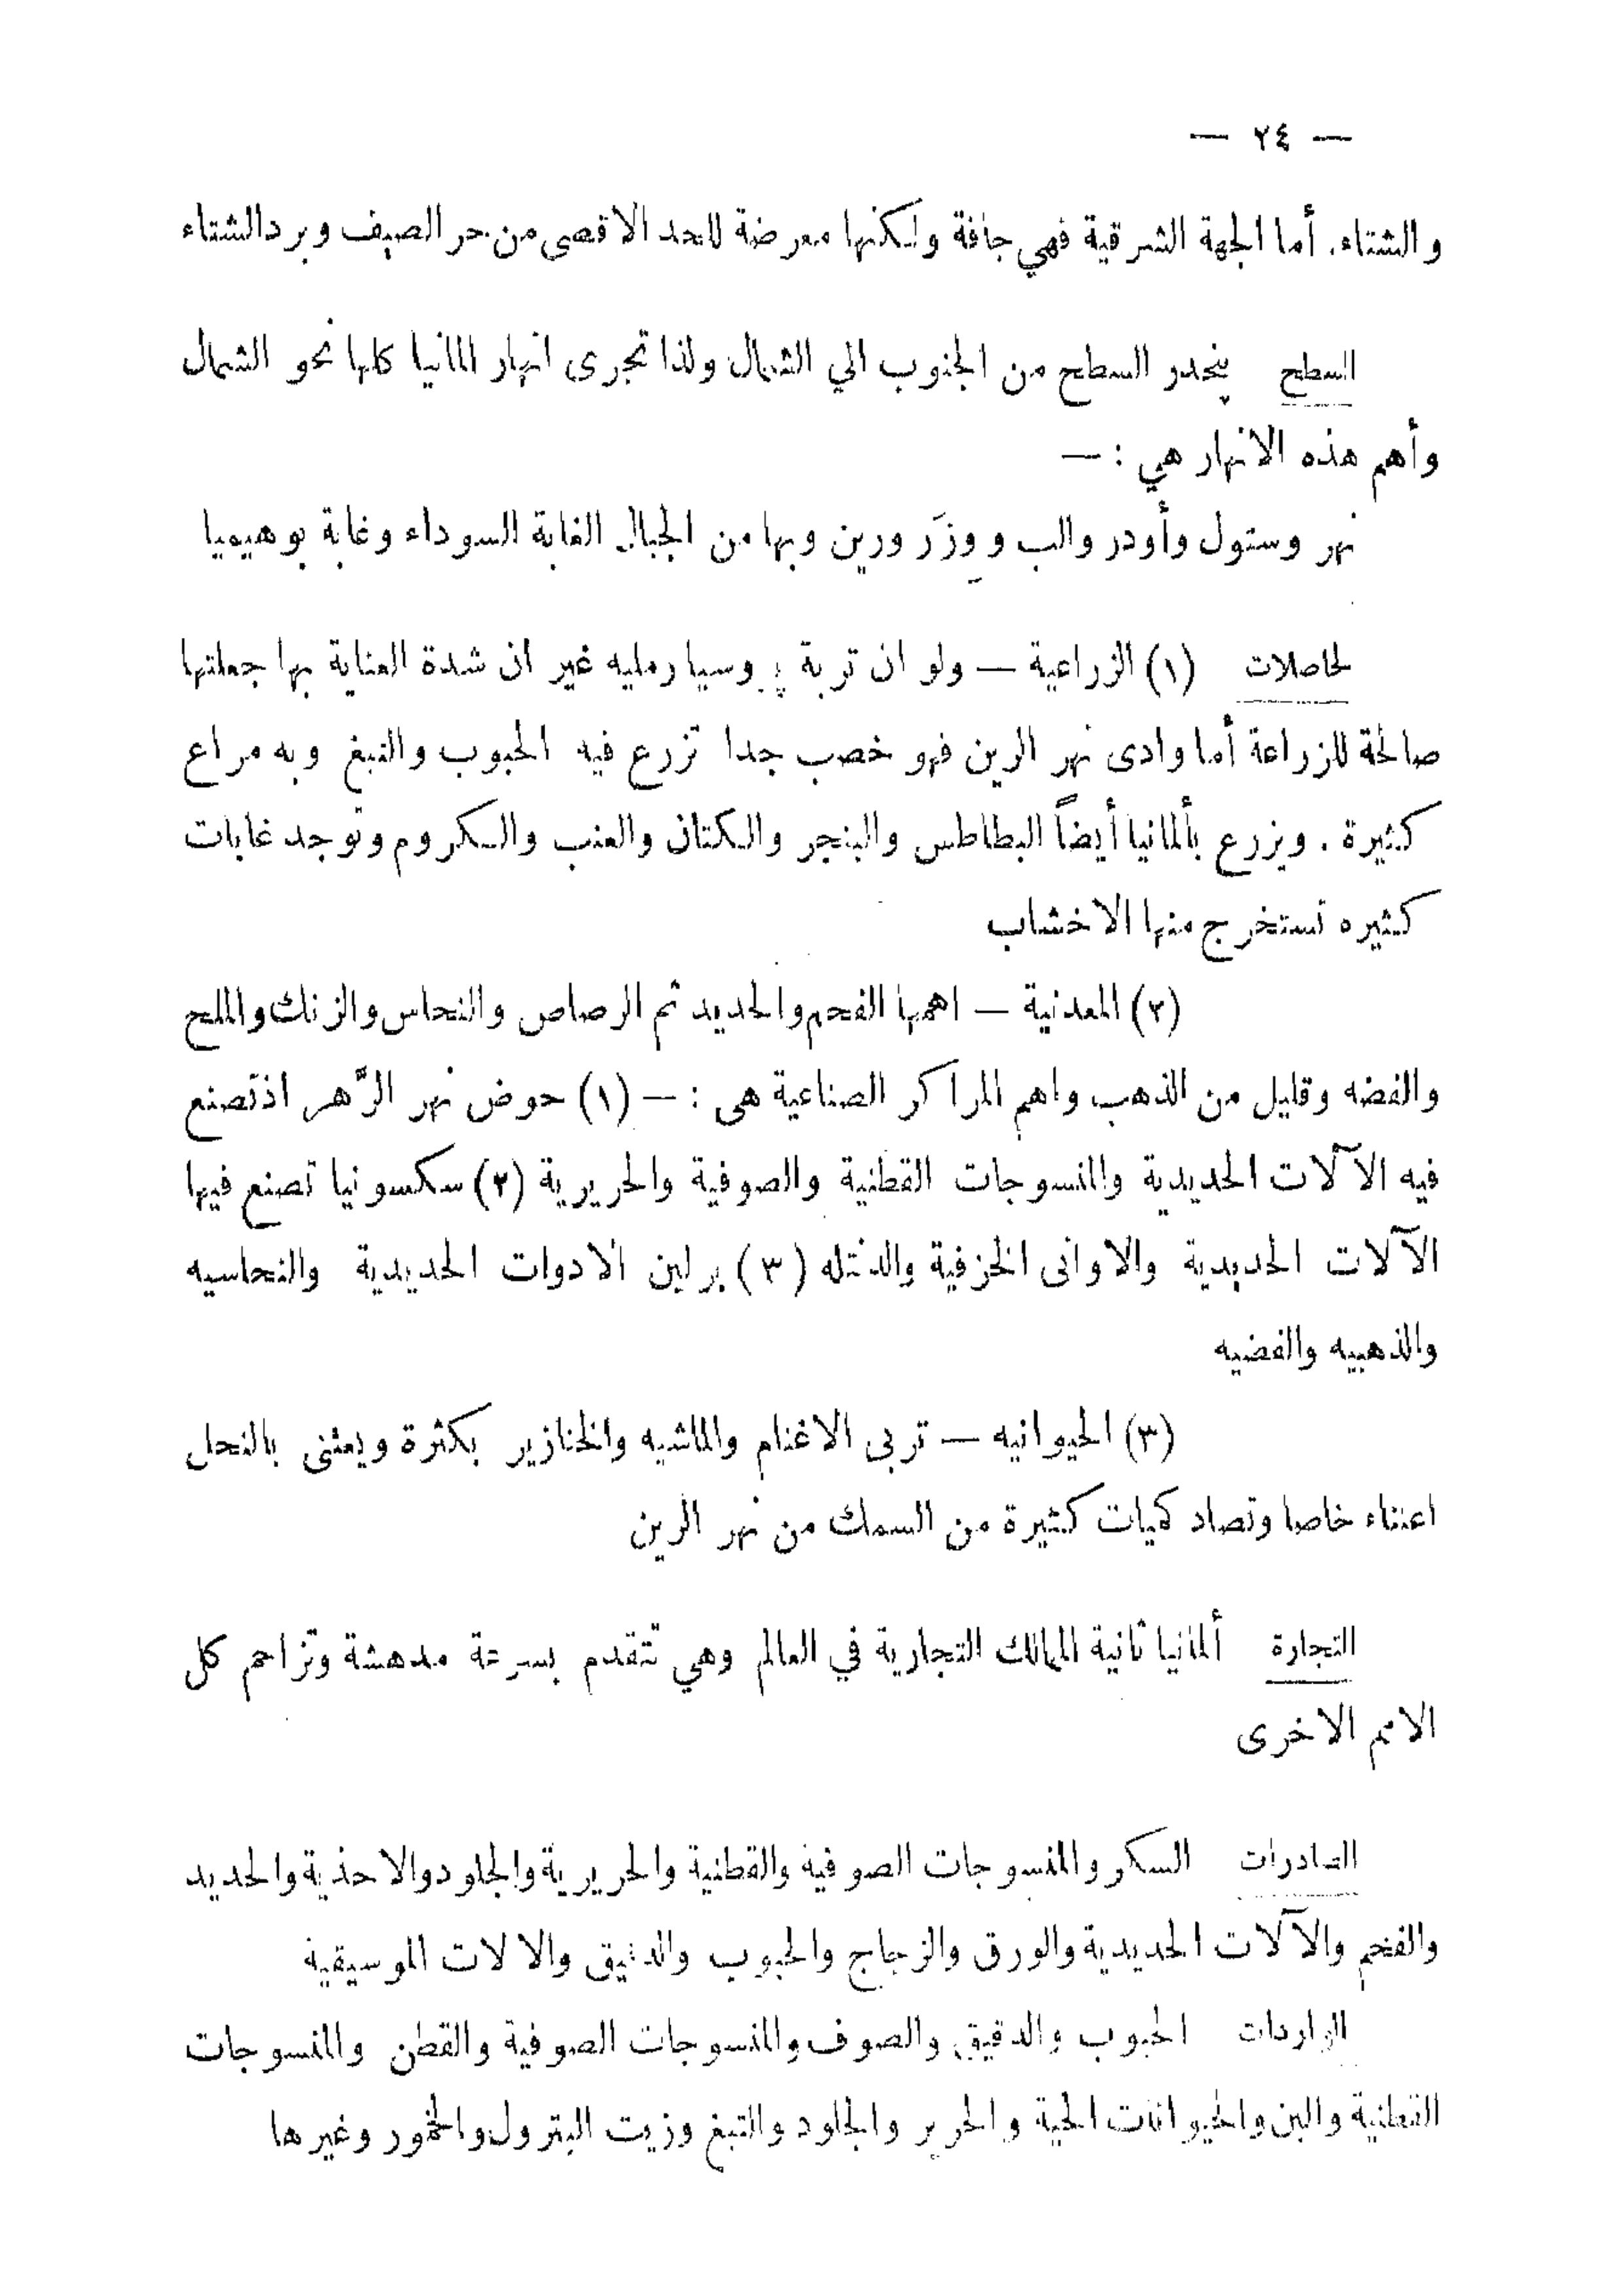 — ٢٤ —
والشتاء. أما الجهة الشرقية فهي جافة ولكنها معرضة للحد الاقصى من حر الصيف وبرد الشتاء
السطح ينحدر السطح من الجنوب الي الشمال ولذا تجرى انهار المانيا كلها نحو الشمال
وأهم هذه الانهار هي : —
نهر وستول وأودر والب ووِزَر ورين وبها من الجبال الغابة السوداء وغابة بوهيميا
لحاصلات (١) الزراعية — ولو ان تربة بروسيا رمليه غير ان شدة العناية بها جعلتها
صالحة للزراعة أما وادى نهر الرين فهو خصب جدا تزرع فيه الحبوب والتبغ وبه مراع
كثيرة . ويزرع بألمانيا أيضاً البطاطس والبنجر والكتان والعنب والكروم وتوجد غابات
كثيره تستخرج منها الاخشاب
(٢) المعدنية — اهمها الفحم والحديد ثم الرصاص والنحاس والزنك والملح
والفضه وقليل من الذهب واهم المراكز الصناعية هى : — (١) حوض نهر الرَّهر اذ تصنع
فيه الآلات الحديدية والمنسوجات القطنية والصوفية والحريرية (٢) سكسونيا تصنع فيها
الآلات الحديدية والاوانى الخزفية والدنتله (٣) برلين الادوات الحديدية والنحاسيه
والذهبيه والفضيه
(٣) الحيوانيه — تربى الاغنام والماشيه والخنازير بكثرة ويعتنى بالنحل
اعتناء خاصا وتصاد كميات كثيرة من السمك من نهر الرين
التجارة ألمانيا ثانية الممالك التجارية في العالم وهي تتقدم بسرعة مدهشة وتزاحم كل
الامم الاخرى
الصادرات السكر والمنسوجات الصوفية والقطنية والحريرية والجلود والاحذية والحديد
والفحم والآلات الحديدية والورق والزجاج والحبوب والدقيق والالات الموسيقية
الواردات الحبوب والدقيق والصوف والمنسوجات الصوفية والقطن والمنسوجات
القطنية والبن والحيوانات الحية والحرير والجلود والتبغ وزيت البترول والخمور وغيرها